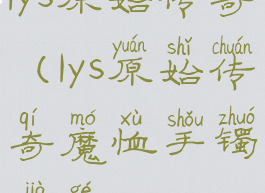 lys原始传奇
yuán shǐ chuán
(lys原始传
qí mó xù shǒu zhuó
奇魔恤手镯
jiè gé